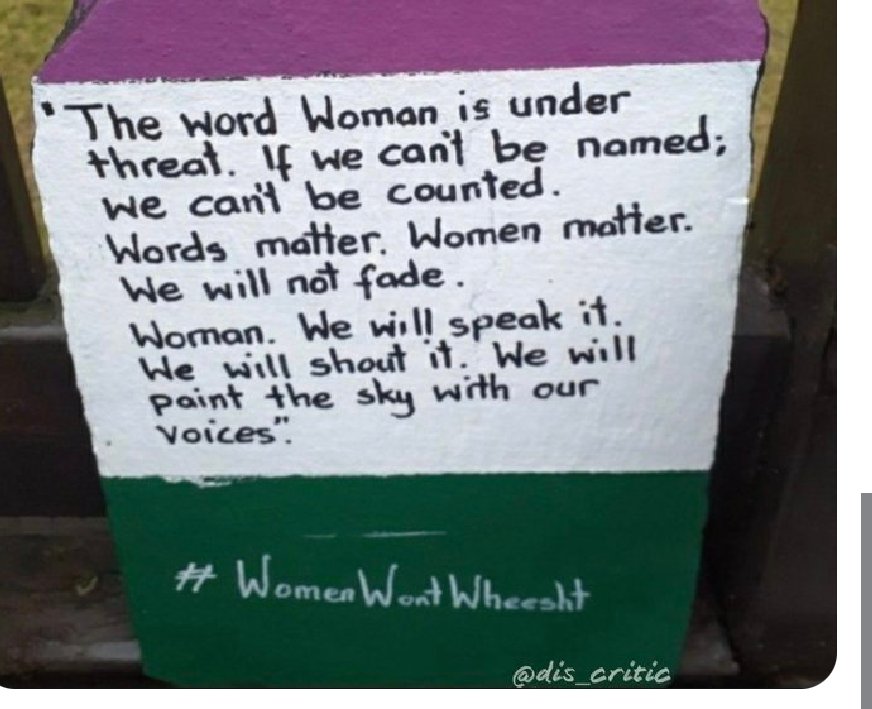 "The word Woman is under
threat. If we can't be named;
we can't be counted.
Words matter. Women matter.
We will not fade.
Woman. We will speak it.
We will shout it. We will
paint the sky with our
voices".
# WomenWontWheesht
@dis_critic